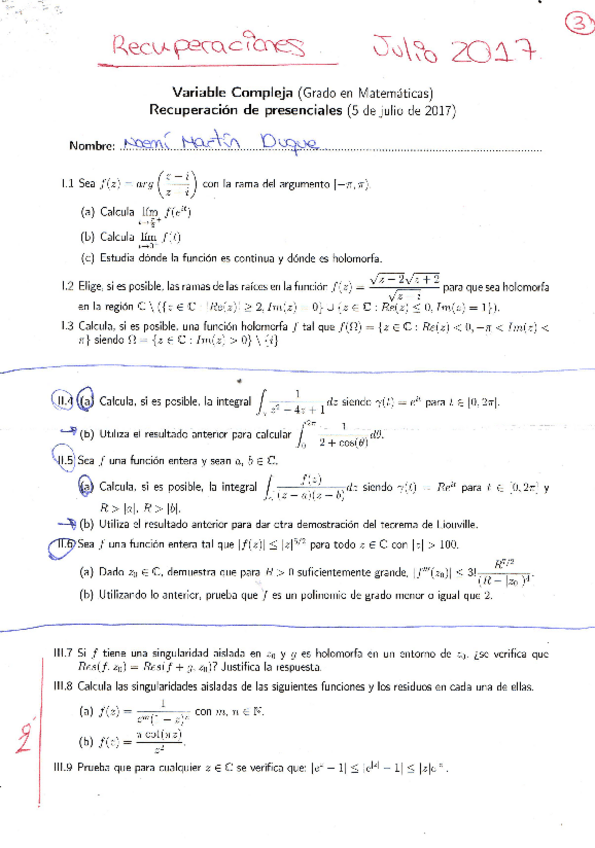 3
Recuperaciones Julio 2017
Variable Compleja (Grado en Matemáticas)
Recuperación de presenciales (5 de julio de 2017)
Nombre: Noemí Martín Duque
I.1 Sea f(z) = arg((z − i)/(z i)) con la rama del argumento [−π, π).
(a) Calcula lím f(e^{it})
(b) Calcula lím f(t)
(c) Estudia dónde la función es continua y dónde es holomorfa.
I.2 Elige, si es posible, las ramas de las raíces en la función f(z) = √(z − 2)√(z + 2)/√(z − i) para que sea holomorfa
en la región ℂ \ ({z ∈ ℂ : |Re(z)| ≥ 2, Im(z) = 0} ∪ {z ∈ ℂ : Re(z) ≤ 0, Im(z) = 1}).
I.3 Calcula, si es posible, una función holomorfa f tal que f(Ω) = {z ∈ ℂ : Re(z) < 0, −π < Im(z) <
π} siendo Ω = {z ∈ ℂ : Im(z) > 0} \ {i}
II.4 (a) Calcula, si es posible, la integral ∫_γ 1/(z² − 4z + 1) dz siendo γ(t) = e^{it} para t ∈ [0, 2π].
(b) Utiliza el resultado anterior para calcular ∫_0^{2π} 1/(2 + cos(θ)) dθ.
II.5 Sea f una función entera y sean a, b ∈ ℂ.
(a) Calcula, si es posible, la integral ∫_γ f(z)/((z − a)(z − b)) dz siendo γ(t) = Re^{it} para t ∈ [0, 2π] y
R > |a|, R > |b|.
(b) Utiliza el resultado anterior para dar otra demostración del teorema de Liouville.
II.6 Sea f una función entera tal que |f(z)| ≤ |z|^{5/2} para todo z ∈ ℂ con |z| > 100.
(a) Dado z₀ ∈ ℂ, demuestra que para R > 0 suficientemente grande, |f'''(z₀)| ≤ 3! R^{7/2}/(R − |z₀|)⁴.
(b) Utilizando lo anterior, prueba que f es un polinomio de grado menor o igual que 2.
III.7 Si f tiene una singularidad aislada en z₀ y g es holomorfa en un entorno de z₀, ¿se verifica que
Res(f, z₀) = Res(f + g, z₀)? Justifica la respuesta.
III.8 Calcula las singularidades aisladas de las siguientes funciones y los residuos en cada una de ellas.
(a) f(z) = 1/(z^m(1 − z)^n) con m, n ∈ ℕ.
(b) f(z) = π cot(πz)/z².
III.9 Prueba que para cualquier z ∈ ℂ se verifica que: |e^z − 1| ≤ |e^{|z|} − 1| ≤ |z|e^{|z|}.